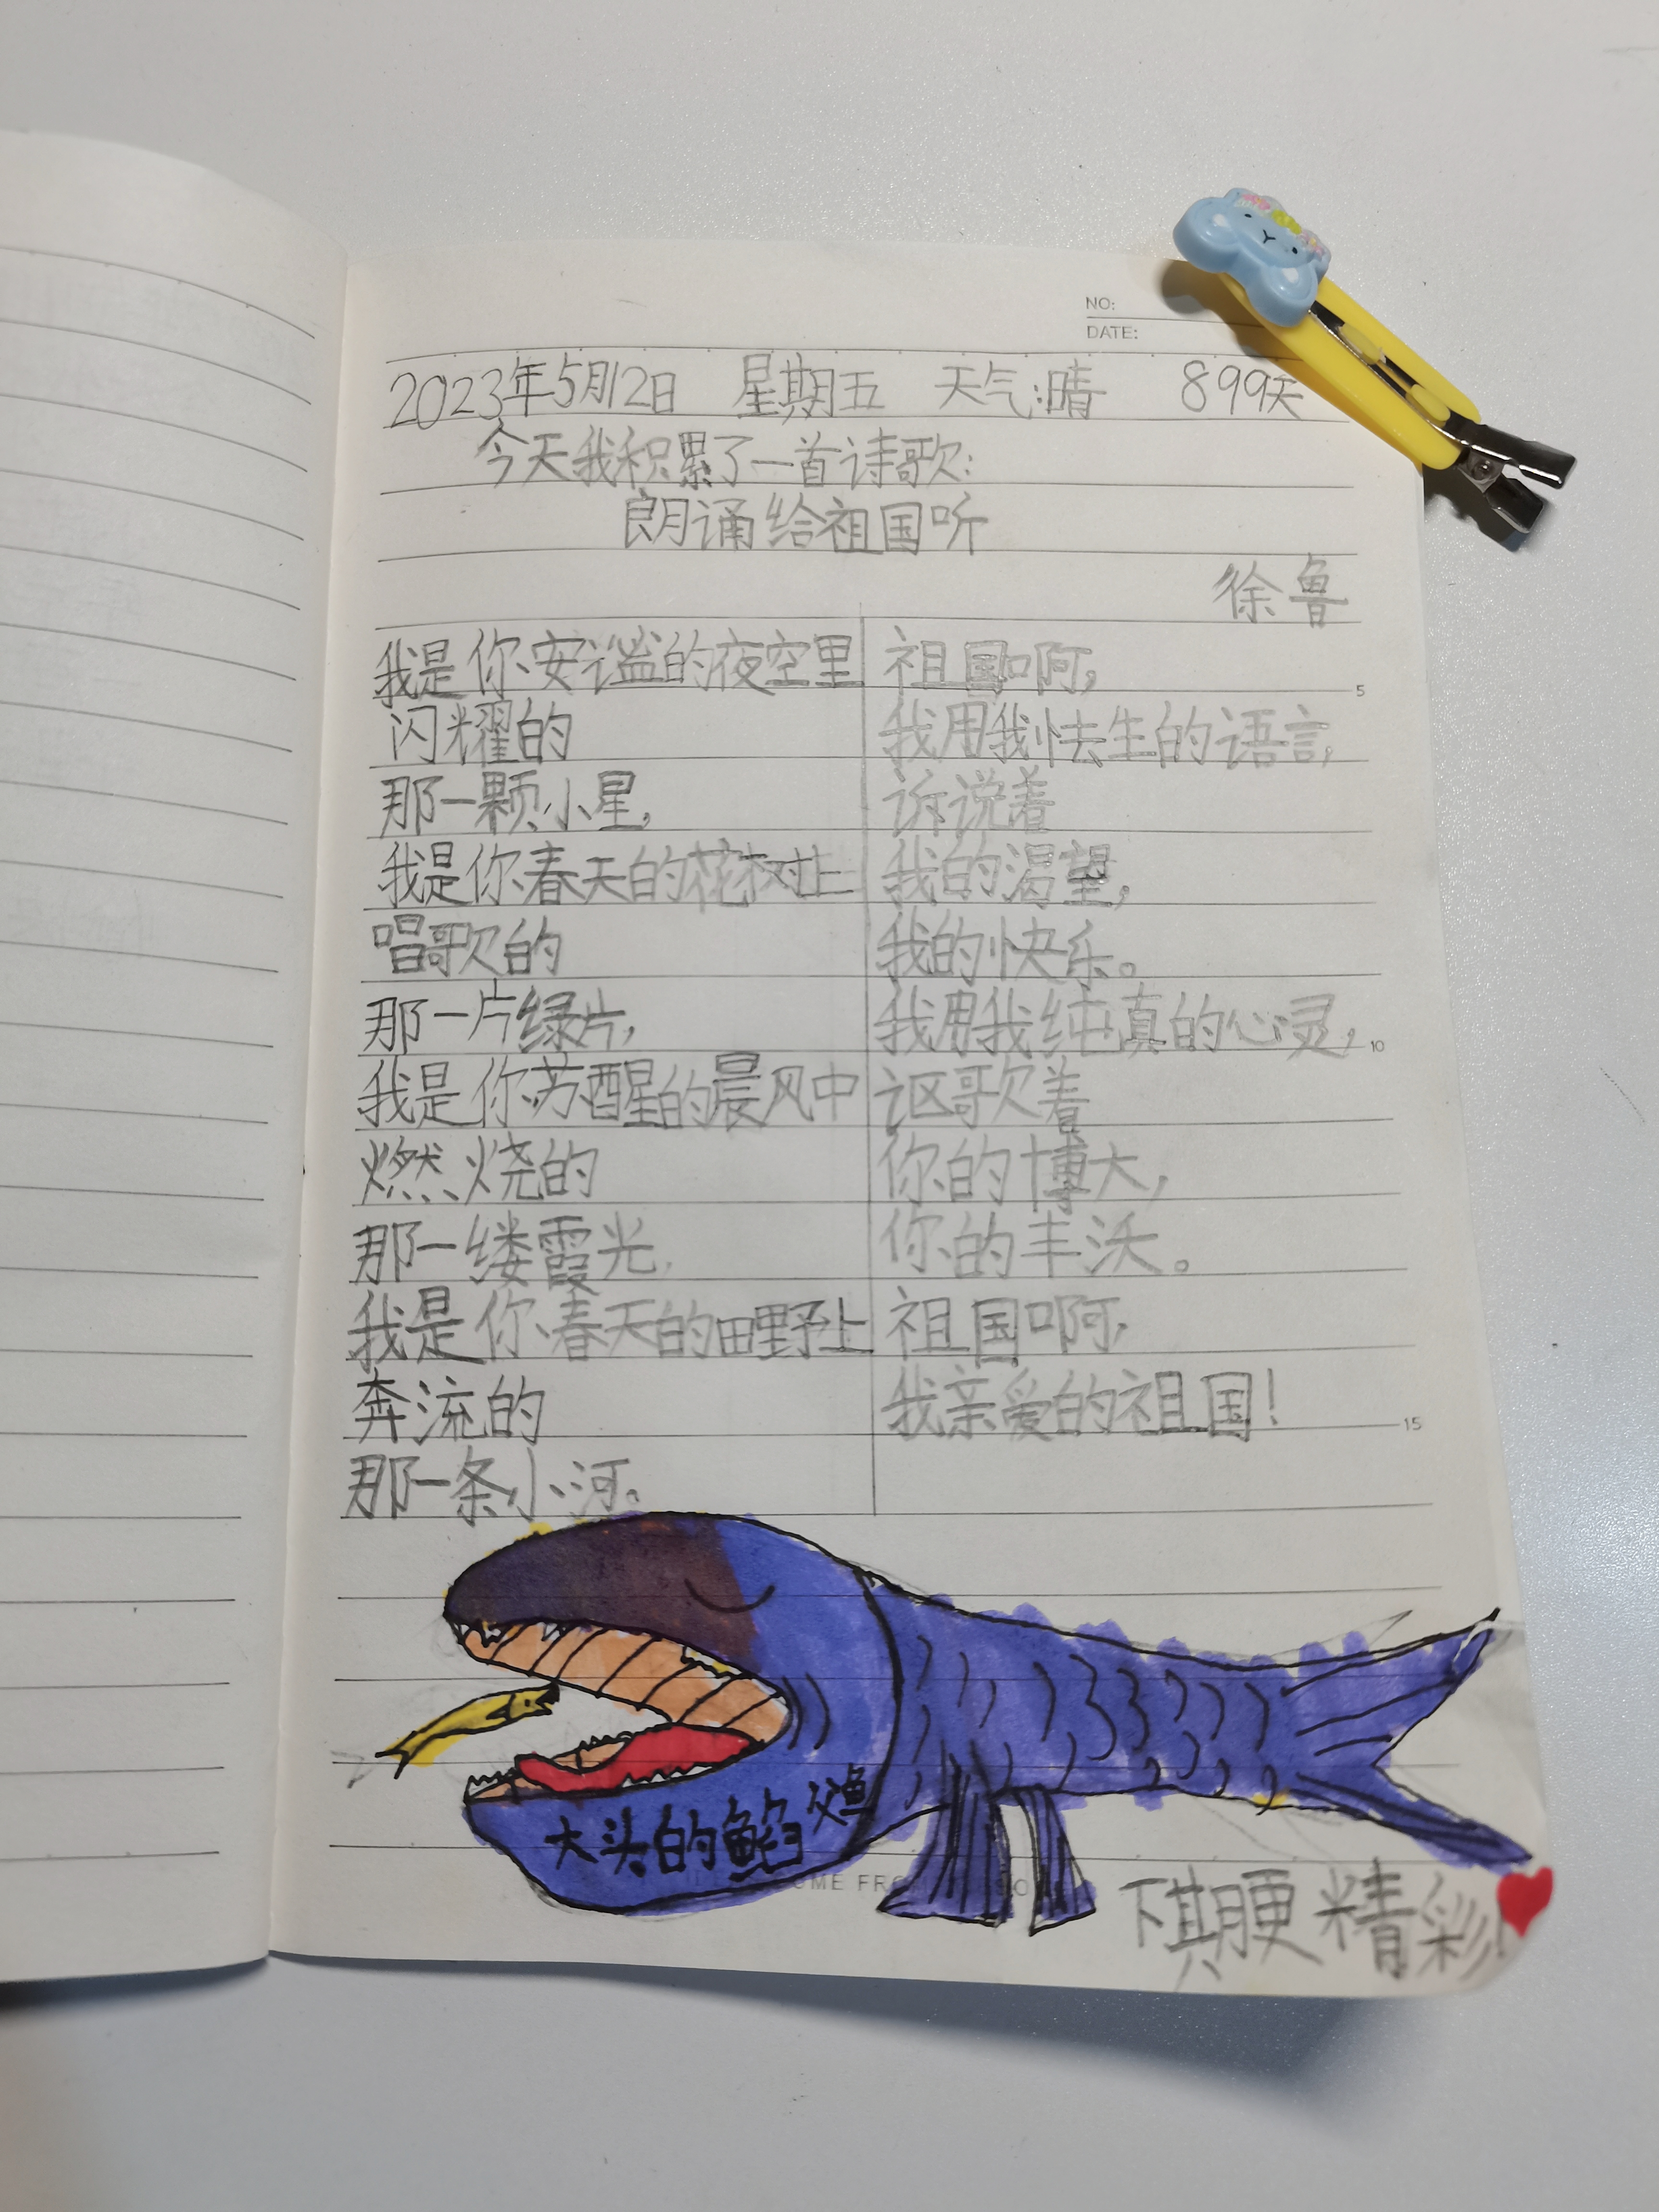 NO:
DATE:
2023年5月12日 星期五 天气:晴 899天
今天我积累了一首诗歌:
朗诵给祖国听
徐鲁
我是你安谧的夜空里
闪耀的
那一颗小星,
我是你春天的花树上
唱歌的
那一片绿片,
我是你苏醒的晨风中
燃烧的
那一缕霞光,
我是你春天的田野上
奔流的
那一条小河。
祖国啊,
我用我怯生的语言,
诉说着
我的渴望,
我的快乐。
我用我纯真的心灵,
讴歌着
你的博大,
你的丰沃。
祖国啊,
我亲爱的祖国!
5
10
15
大头的
下期更精彩